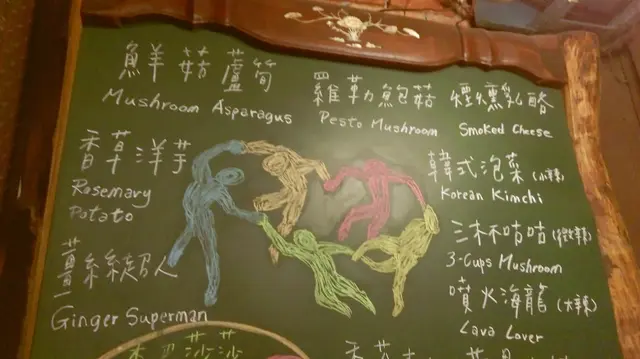 鮮菇蘆筍
Mushroom Asparagus
羅勒鮑菇
Pesto Mushroom
煙燻乳酪
Smoked Cheese
香草洋芋
Rosemary
Potato
韓式泡菜(小辣)
Korean Kimchi
三杯咕咕(微辣)
3-Cups Mushroom
薑絲超人
Ginger Superman
噴火海龍(大辣)
Lava Lover
莎莎